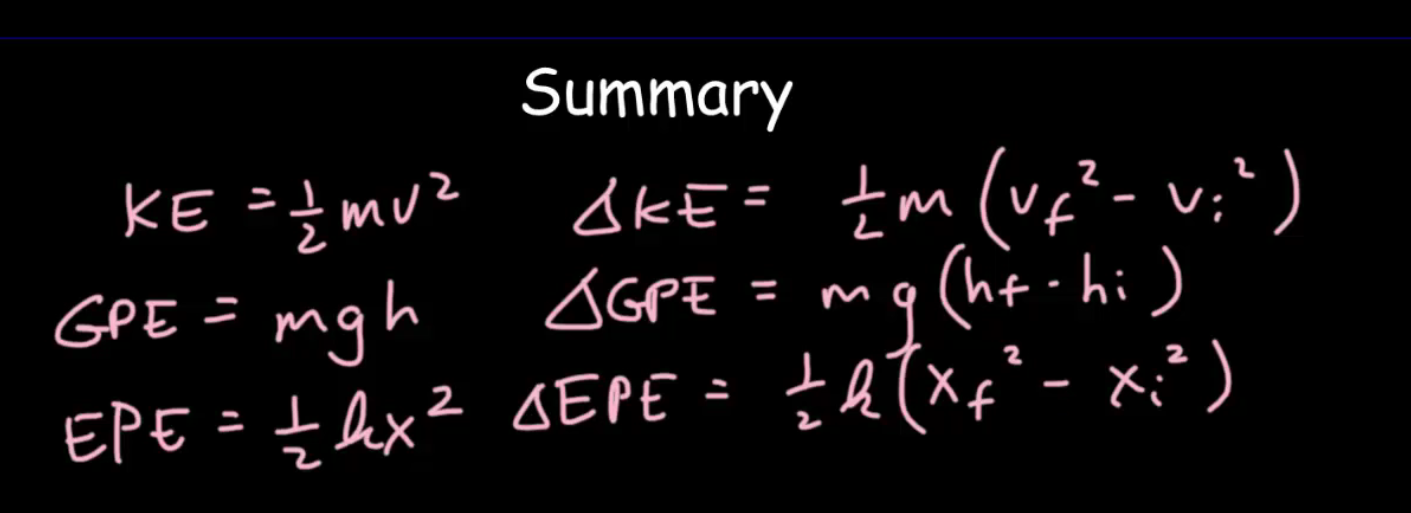 Summary
KE = ½mv² ΔKE = ½m(v_f² - v_i²)
GPE = mgh ΔGPE = mg(hf - hi)
EPE = ½kx² ΔEPE = ½k(x_f² - x_i²)